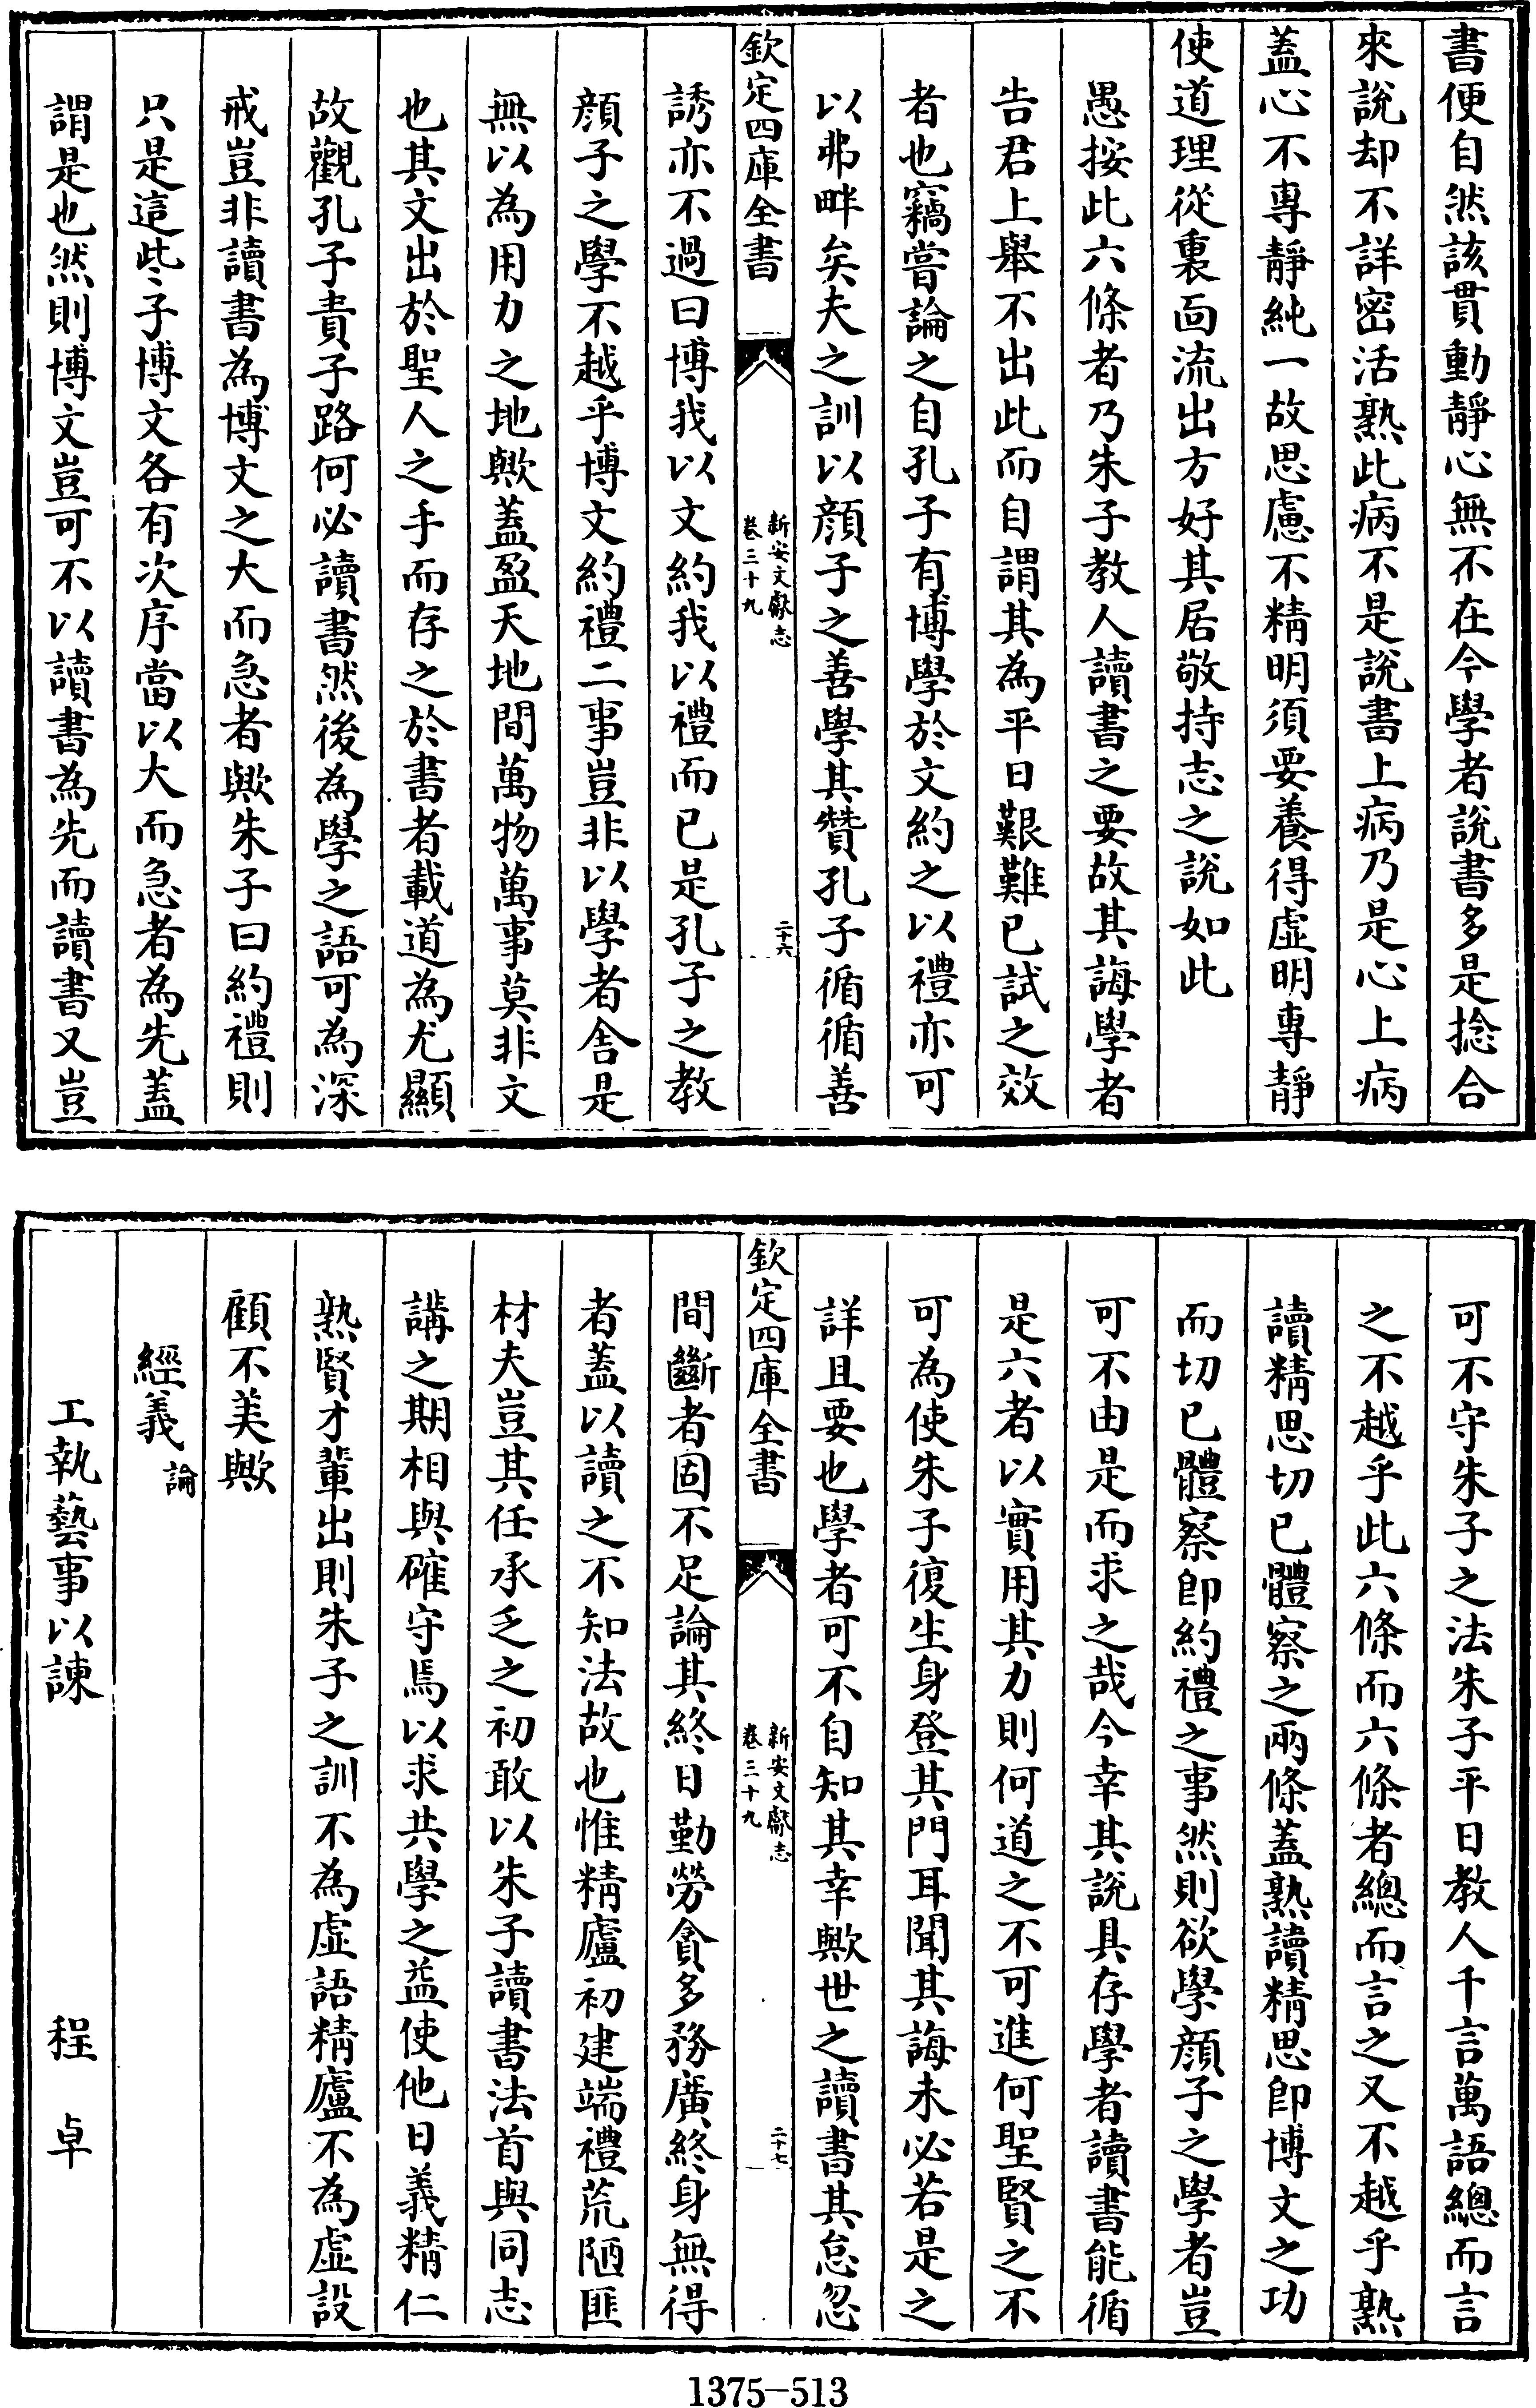 書便自然該貫動靜心無不在今學者說書多是捻合
來說却不詳密活熟此病不是說書上病乃是心上病
蓋心不專靜純一故思慮不精明須要養得虛明專靜
使道理從裏面流出方好其居敬持志之說如此
愚按此六條者乃朱子教人讀書之要故其誨學者
告君上舉不出此而自謂其為平日艱難已試之效
者也竊嘗論之自孔子有博學於文約之以禮亦可
以弗畔矣夫之訓以顔子之善學其贊孔子循循善
欽定四庫全書
新安文獻志
卷三十九
二十六
誘亦不過曰博我以文約我以禮而已是孔子之教
顔子之學不越乎博文約禮二事豈非以學者舍是
無以為用力之地歟蓋盈天地間萬物萬事莫非文
也其文出於聖人之手而存之於書者載道為尤顯
故觀孔子責子路何必讀書然後為學之語可為深
戒豈非讀書為博文之大而急者歟朱子曰約禮則
只是這些子博文各有次序當以大而急者為先蓋
謂是也然則博文豈可不以讀書為先而讀書又豈
可不守朱子之法朱子平日教人千言萬語總而言
之不越乎此六條而六條者總而言之又不越乎熟
讀精思切已體察之兩條蓋熟讀精思即博文之功
而切已體察即約禮之事然則欲學顔子之學者豈
可不由是而求之哉今幸其說具存學者讀書能循
是六者以實用其力則何道之不可進何聖賢之不
可為使朱子復生身登其門耳聞其誨未必若是之
詳且要也學者可不自知其幸歟世之讀書其怠忽
欽定四庫全書
新安文獻志
卷三十九
二十七
間斷者固不足論其終日勤勞貪多務廣終身無得
者蓋以讀之不知法故也惟精廬初建端禮荒陋匪
材夫豈其任承乏之初敢以朱子讀書法首與同志
講之期相與確守焉以求共學之益使他日義精仁
熟賢才輩出則朱子之訓不為虛語精廬不為虛設
顧不美歟
經義論
工執藝事以諫 程卓
1375-513